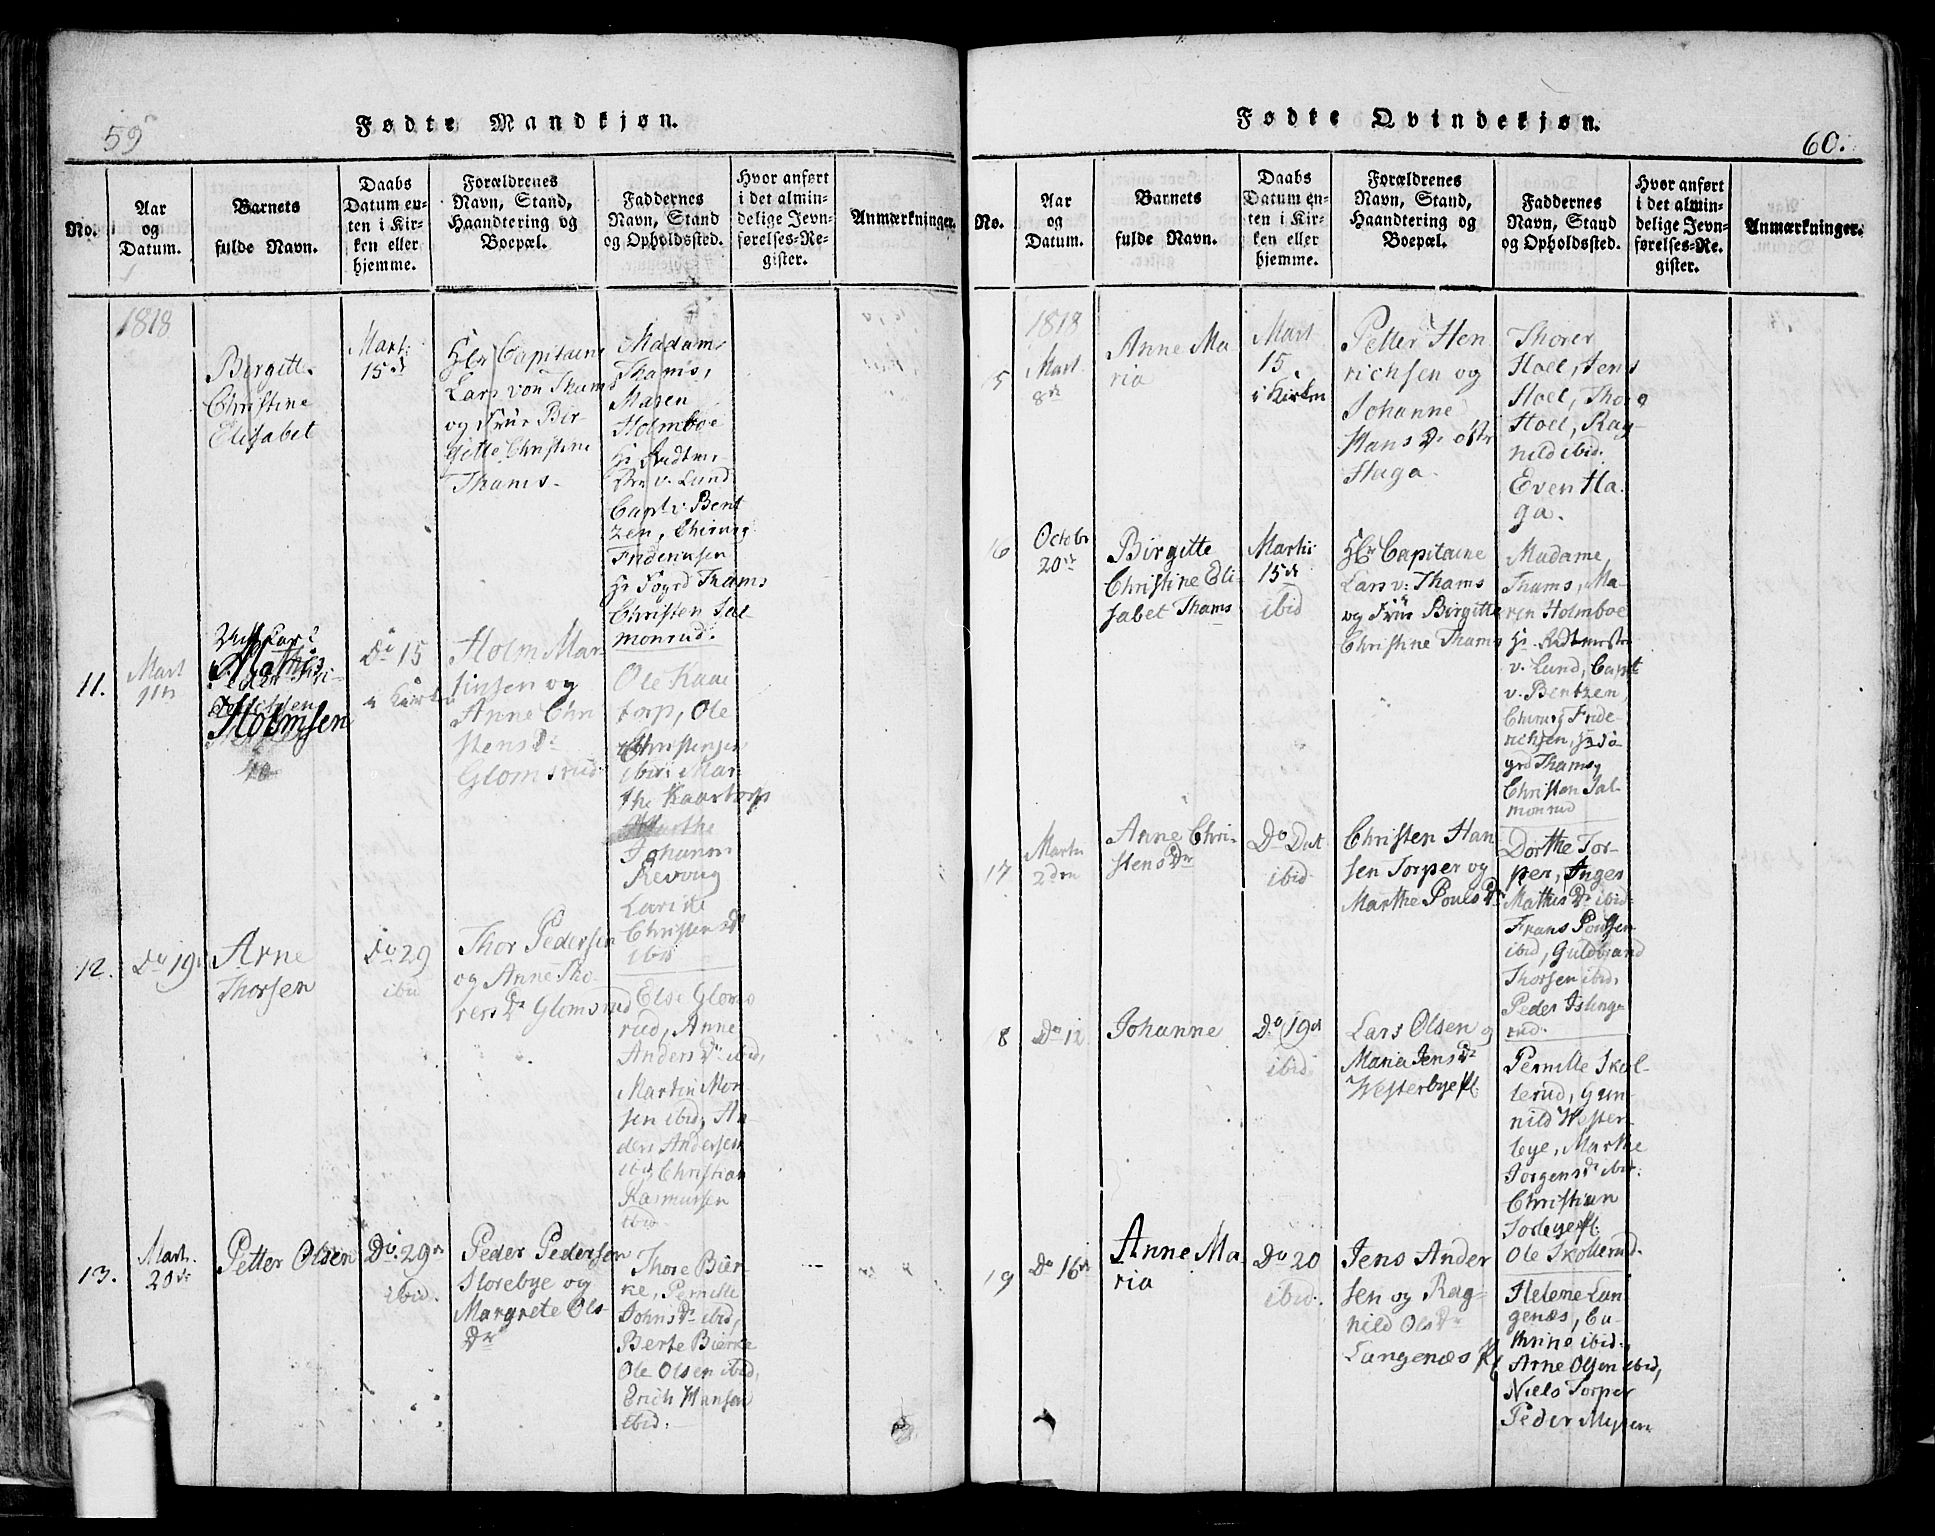 59
Fødte Mandkjøn.
No.
Aar
og
Datum.
Barnets
fulde Navn.
Daabs
Datum en-
ten i Kir-
ken eller
hjemme.
Forældrenes
Navn, Stand,
Haandtering og
Boepæl.
Faddernes
Navn, Stand
og Opholdssted.
Hvor anført
i det almin-
delige Jevn-
førelses-Re-
gister.
Anmærkninger.
1818
Birgitte
Christine
Elisabet
Mart.
15de
Hr Capitaine
Lars von Thams
og Frue Bir
gitte Christine
Thams.
Madam
Thams,
Maren
Holmboe
Hr Ridtm
v. Lund
Capt v. Bent
zen, Chirurg
Friderichsen
Hr Fogrd Thams
Christen Sal
monrud.
11.
Mart
11te
Mathis
Holmsen
Do 15
i Kirken
Holm Mar
tinsen og
Anne Chri
stens Dr
Glomsrud
Ole Kaae
torp, Ole
Christensen
ibid. Mar
the Kaastorp
Marthe
Johann
Revoug
Larine
Christens Dr
ibid
12.
Do 19
Arne
Thorsen
Do 29
ibid
Thor Pedersen
og Anne Tho
rers Dr Glomsrud
Else Gloms
rud, Anne
Anders Dr ibid,
Martin Mor
sen ibid, An
ders Andersen
ibid Christian
Rasmussen
ibid.
13.
Mart.
20de
Petter Olsen
Do. 29de
ibid.
Peder Pedersen
Storebye og
Margrete Ols
Dr
Thore Bier
ke, Pernille
Johns Dr ibid,
Berte Bierke
Ole Olsen ibid,
Erich Hansen
ibid.
60.
Fødte Qvindekjøn.
No.
Aar
og
Datum.
Barnets
fulde Navn.
Daabs
Datum en-
ten i Kir-
ken eller
hjemme.
Forældrenes
Navn, Stand,
Haandtering og
Boepæl.
Faddernes
Navn, Stand
og Opholdssted.
Hvor anført
i det almin-
delige Jevn-
førelses-Re-
gister.
Anmærkninger.
1818
5
Mart
8de
Anne Ma
ria
Mart
15
i Kirken
Petter Hen
richsen og
Johanne
Hans Dr
Haga.
Thorer
Hoel, Jens
Hoel, Thore
Hoel, Rag-
nild ibid.
Even Ha
ga.
16
Octobr
20de
Birgitte
Christine Eli
sabet Thams
Martii
15de
ibid
Hr Capitaine
Lars v: Thams
og Frue Birgitte
Christine Thams
Madame
Thams, Ma-
ren Holmboe
Hr Ridtmestr
v. Lund, Capt
v. Bentzen,
Chirurg Fride
richsen, Hr Fo
grd Thams,
Christen Sal
monrud
17
Martii
2den
Anne Chri-
stens Dr
Do Dat
ibid
Christen Han
sen Torper og
Marthe Pouls Dr
Dorthe Tor-
per, Inger
Mathis Dr ibid
Frans Poulsen
ibid, Guldbrand
Thorsen ibid,
Peder Islinge
rud.
18
Do 12
Johanne
Do 19de
ibid
Lars Olsen og
Maria Jens Dr
Westerbye pl.
Pernille Skol-
lerud, Gun
nild Wester
bye, Marthe
Jorgens Dr ibid.
Christian
Torbye pl.
Ole Skollerud.
19
Do 16de
Anne Ma
ria
Do 20
ibid.
Jens Ander
sen og Rag-
nild Ols Dr
Langenæs pl
Helene Lan
genæs, Ca
thrine ibid.
Arne Olsen ibid,
Niels Torper
Peder Mysen